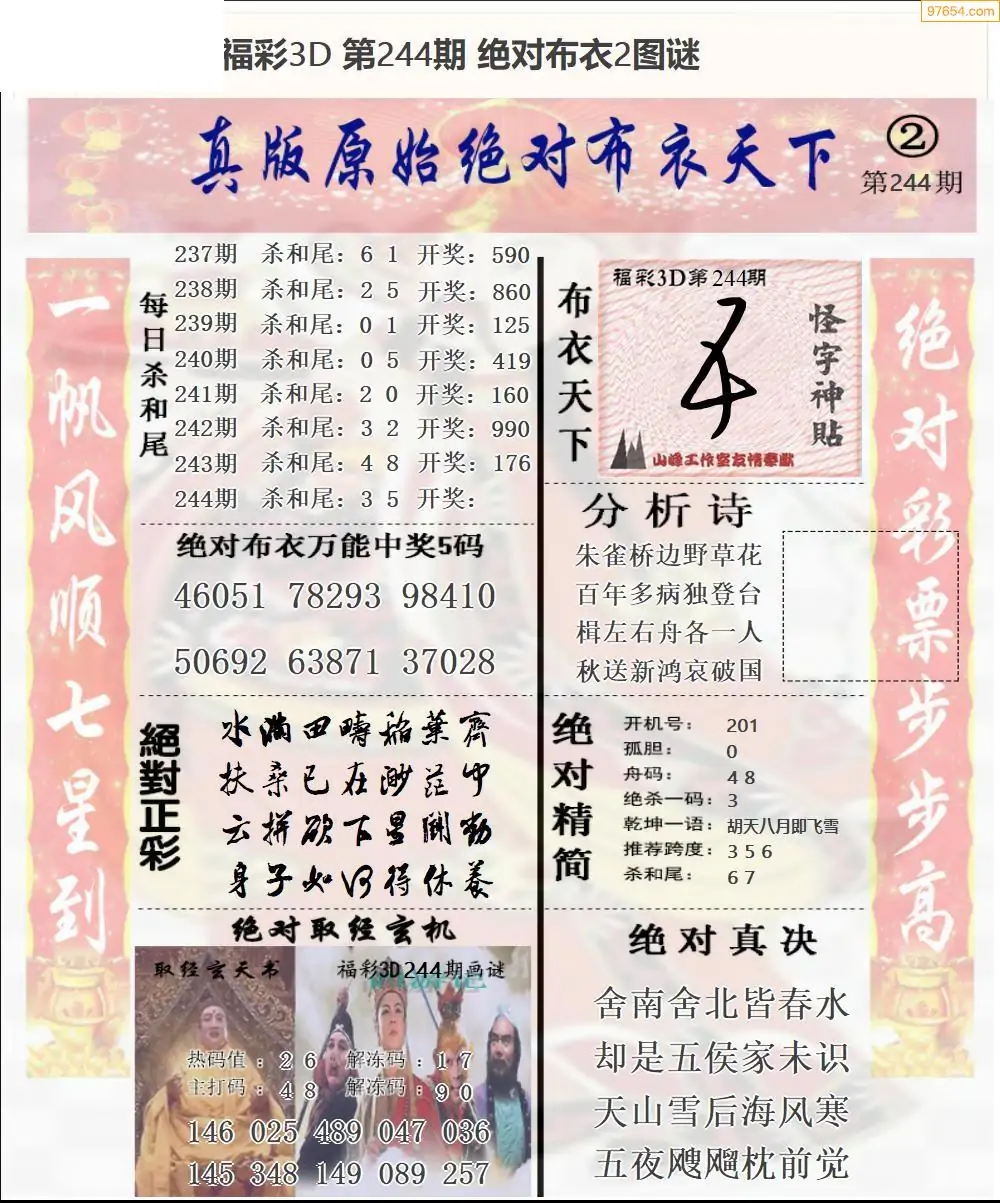 97654.com
福彩3D 第244期 绝对布衣2图谜
真版原始绝对布衣天下
②
第244期
一帆风顺七星到
每日杀和尾
237期 杀和尾：6 1 开奖：590
238期 杀和尾：2 5 开奖：860
239期 杀和尾：0 1 开奖：125
240期 杀和尾：0 5 开奖：419
241期 杀和尾：2 0 开奖：160
242期 杀和尾：3 2 开奖：990
243期 杀和尾：4 8 开奖：176
244期 杀和尾：3 5 开奖：
绝对布衣万能中奖5码
46051 78293 98410
50692 63871 37028
絕對正彩
水满田畴稻葉齊
扶桑已在渺茫中
云拼欲下星斗动
身子如何得休养
绝对取经玄机
取经玄天书
福彩3D244期画谜
热码值：2 6 解冻码：1 7
主打码：4 8 解冻码：9 0
146 025 489 047 036
145 348 149 089 257
布衣天下
福彩3D第244期
怪字神貼
山峰工作室友情奉献
分析诗
朱雀桥边野草花
百年多病独登台
楫左右舟各一人
秋送新鸿哀破国
绝对精简
开机号： 201
孤胆： 0
舟码： 4 8
绝杀一码：3
乾坤一语：胡天八月即飞雪
推荐跨度：3 5 6
杀和尾： 6 7
绝对真决
舍南舍北皆春水
却是五侯家未识
天山雪后海风寒
五夜飕飗枕前觉
绝对彩票步步高